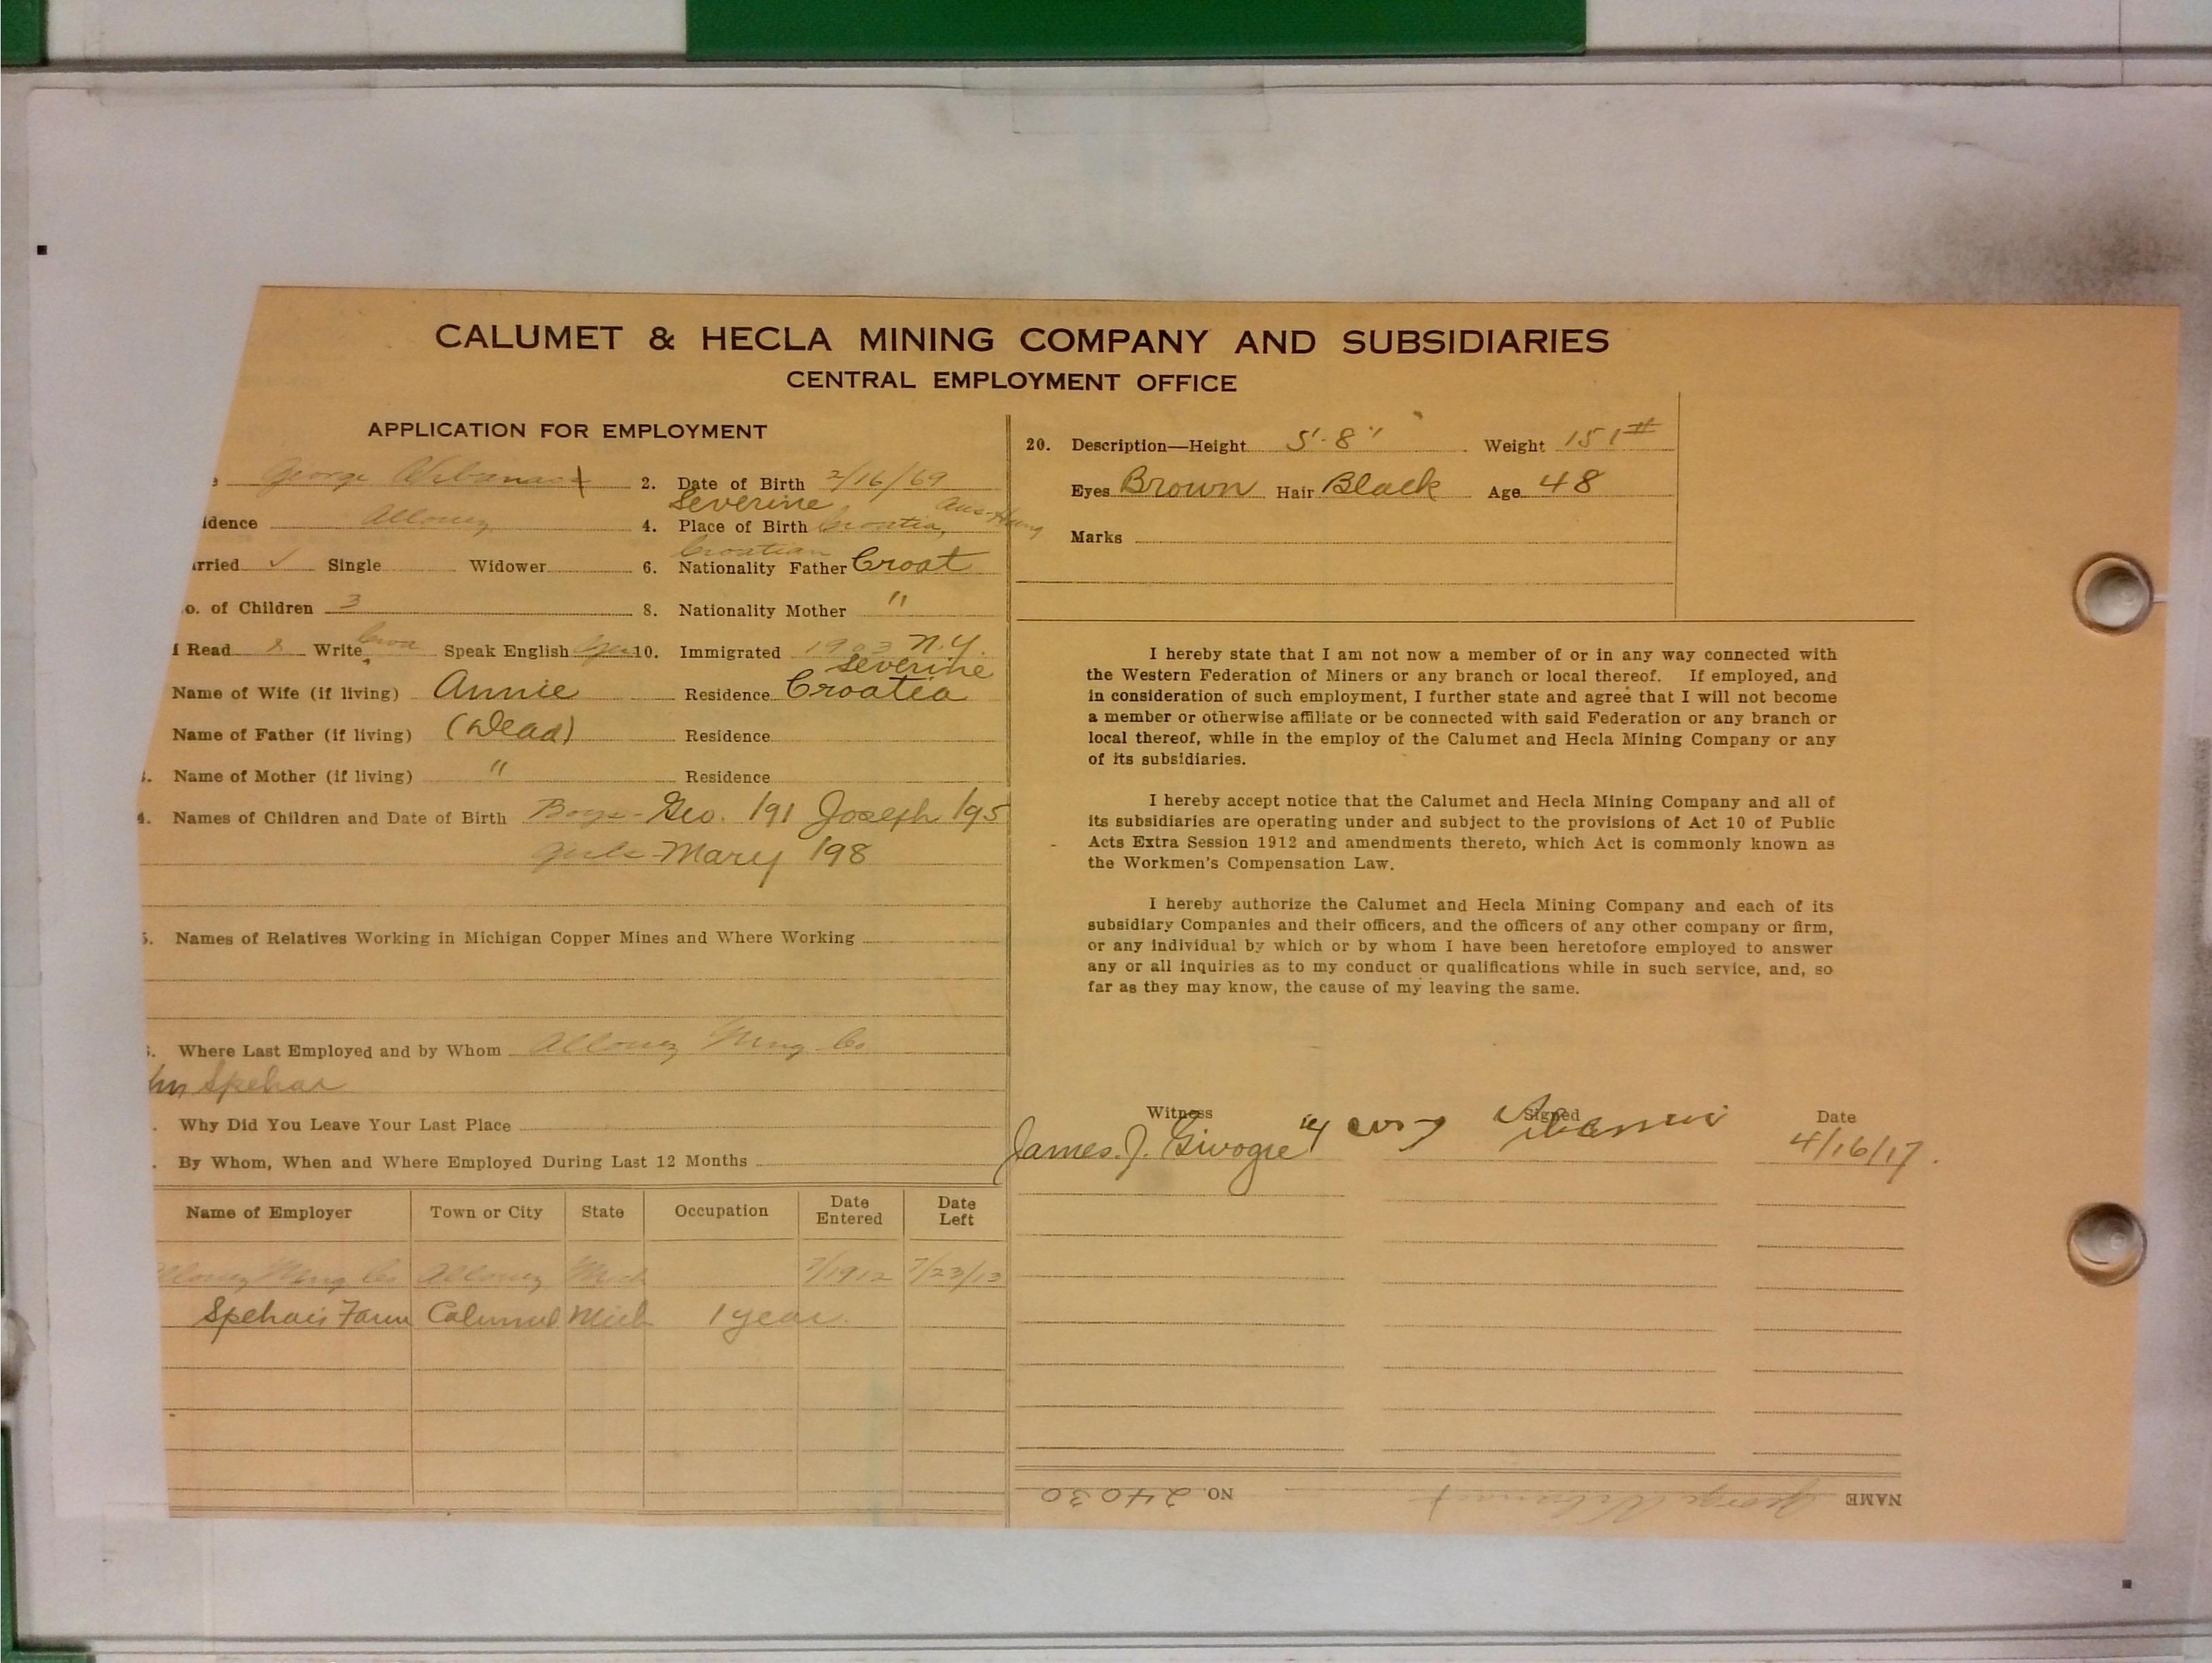 CALUMET & HECLA MINING COMPANY AND SUBSIDIARIES
CENTRAL EMPLOYMENT OFFICE
APPLICATION FOR EMPLOYMENT
George
2. Date of Birth 2/16/69
Severine
idence Allouez
4. Place of Birth Croatia, Aus-Hung
Croatian
rried ✓ Single Widower
6. Nationality Father Croat
o. of Children 3
8. Nationality Mother "
d Read & Write Croa Speak English
10. Immigrated 1903 N.Y.
Severine
Name of Wife (if living) Annie Residence Croatia
Name of Father (if living) (Dead) Residence
Name of Mother (if living) " Residence
4. Names of Children and Date of Birth Boys- Geo. 191 Joseph 195
Girls- Mary 198
5. Names of Relatives Working in Michigan Copper Mines and Where Working
Where Last Employed and by Whom Allouez Mng Co
hn Spehar
Why Did You Leave Your Last Place
By Whom, When and Where Employed During Last 12 Months
Name of Employer Town or City State Occupation Date Entered Date Left
Allouez Mng Co Allouez Mich 7/1912 7/23/13
Spehars Farm Calumet Mich 1 year.
20. Description—Height 5'-8" Weight 151#
Eyes Brown Hair Black Age 48
Marks
I hereby state that I am not now a member of or in any way connected with
the Western Federation of Miners or any branch or local thereof. If employed, and
in consideration of such employment, I further state and agree that I will not become
a member or otherwise affiliate or be connected with said Federation or any branch or
local thereof, while in the employ of the Calumet and Hecla Mining Company or any
of its subsidiaries.
I hereby accept notice that the Calumet and Hecla Mining Company and all of
its subsidiaries are operating under and subject to the provisions of Act 10 of Public
Acts Extra Session 1912 and amendments thereto, which Act is commonly known as
the Workmen's Compensation Law.
I hereby authorize the Calumet and Hecla Mining Company and each of its
subsidiary Companies and their officers, and the officers of any other company or firm,
or any individual by which or by whom I have been heretofore employed to answer
any or all inquiries as to my conduct or qualifications while in such service, and, so
far as they may know, the cause of my leaving the same.
Witness Signed Date
James. J. 4/16/17.
NAME George NO. 24030